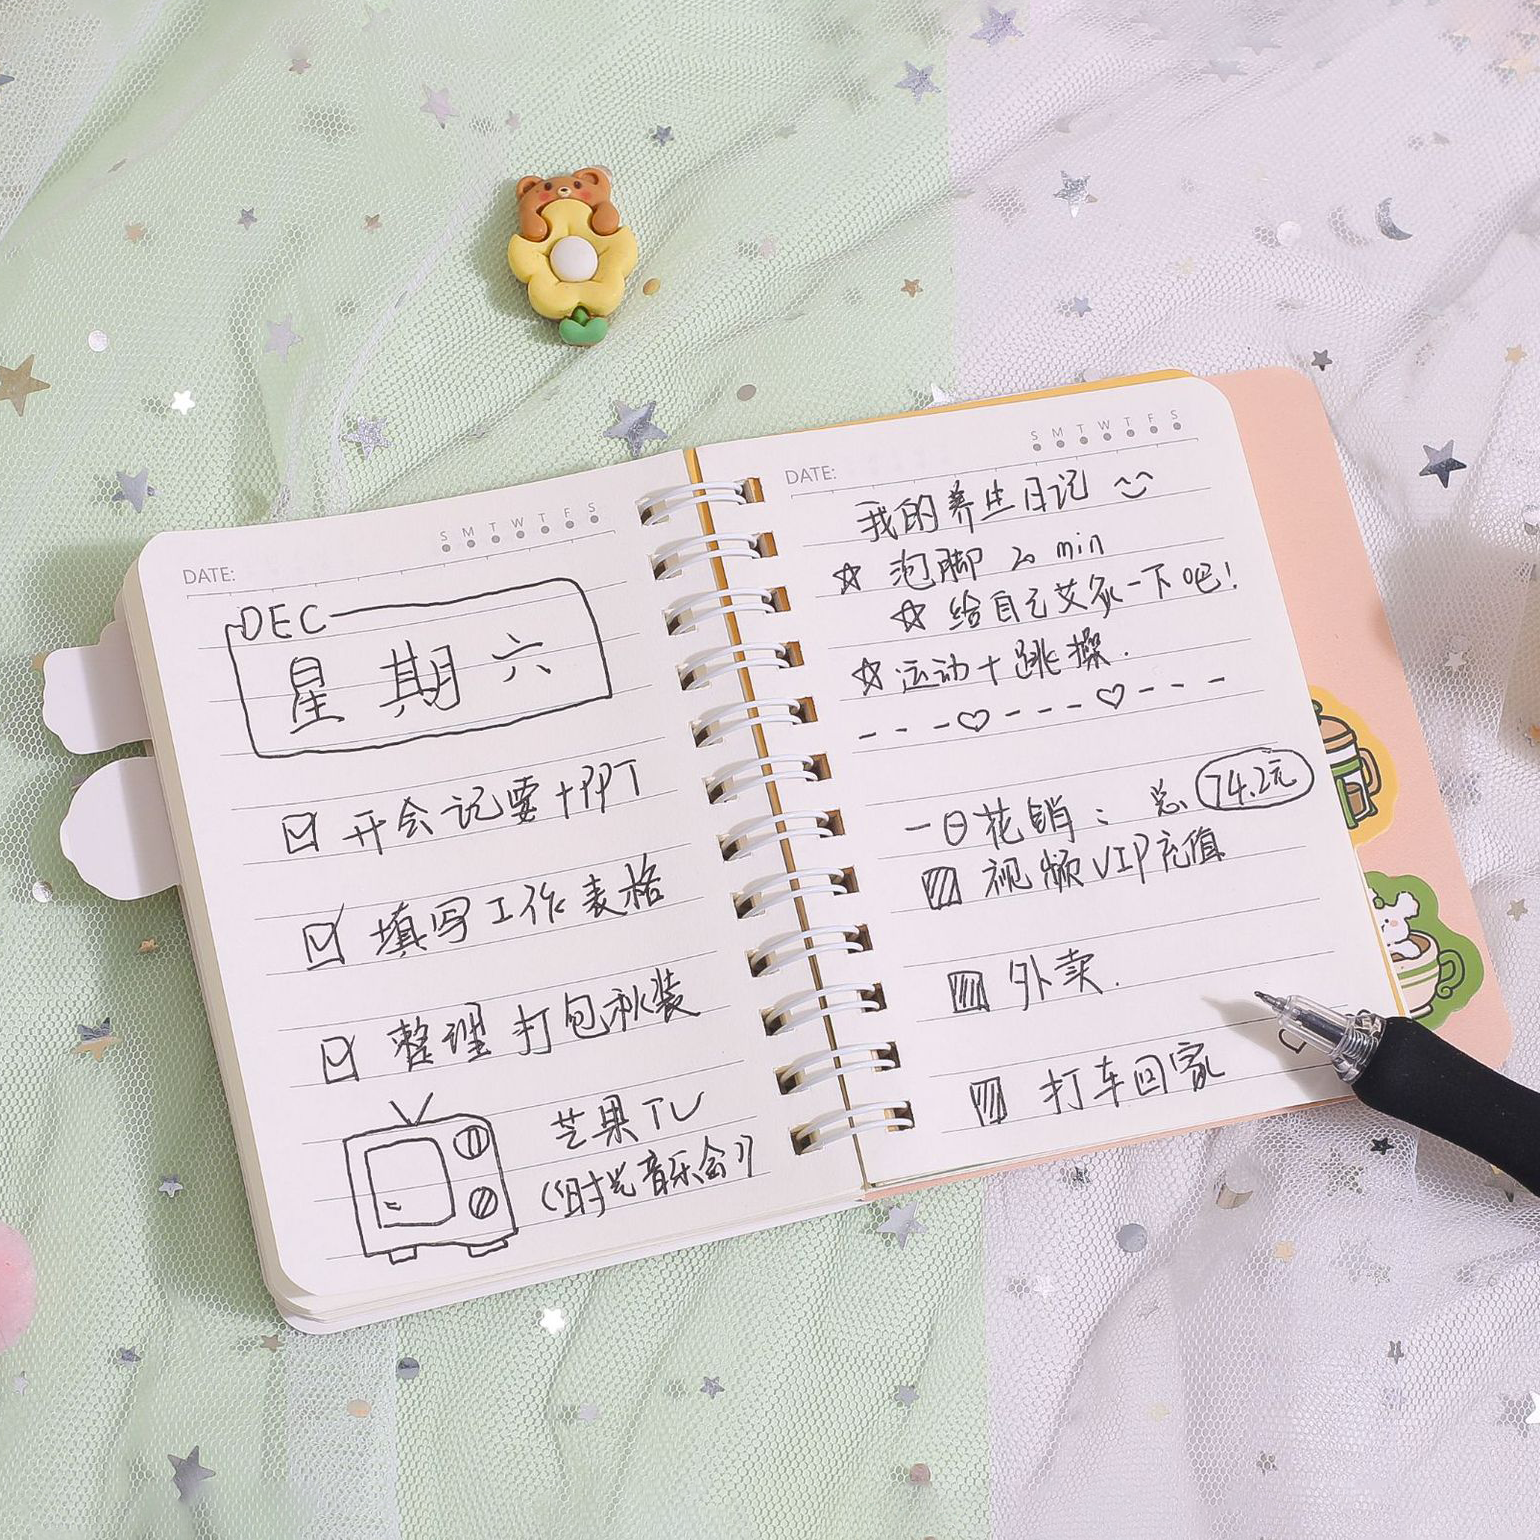 S M T W T F S
DATE:
DEC
星期六
开会记要+PPT
填写工作表格
整理打包秋装
芒果TV
《时光音乐会》
S M T W T F S
DATE:
我的养生日记
泡脚 20 min
给自己艾灸一下吧!
运动+跳操.
一日花销: 总 74.2元
视频VIP充值
外卖.
打车回家